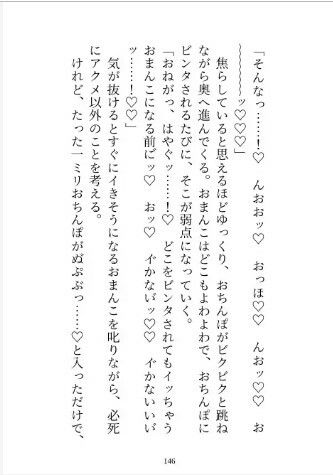 「そんなっ……！♡　んおおッ♡　おっほ♡♡　んおッ♡♡　お
〜〜〜〜〜ッ♡♡♡」
　焦らしていると思えるほどゆっくり、おちんぽがビクビクと跳ね
ながら奥へ進んでくる。おまんこはどこもよわよわで、おちんぽに
ビンタされるたびに、そこが弱点になっていく。
「おねがっ、はやぐッ……！♡　どこをビンタされてもイッちゃう
おまんこになる前にッ♡　おッ♡　イ゛かないッ♡♡　イ゛かないいい
ッ……！♡♡」
　気が抜けるとすぐにイきそうになるおまんこを叱りながら、必死
にアクメ以外のことを考える。
　けれど、たった一ミリおちんぽがぬぷぷっ……♡と入っただけで、
146